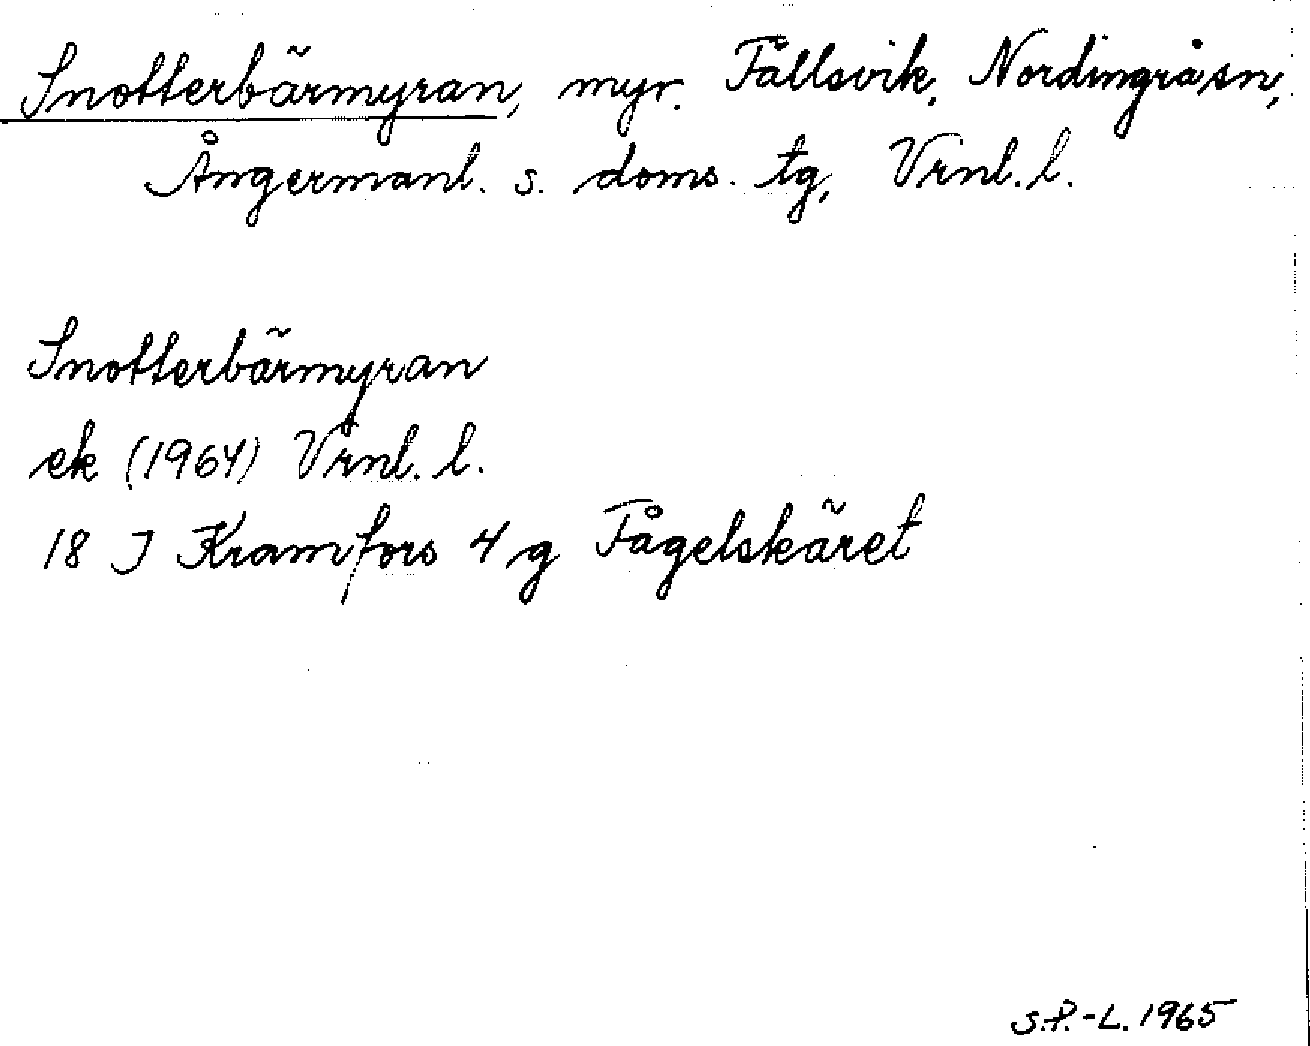 Snotterbärmyran, myr. Fällsvik, Nordingrå sn,
Ångermanl. s. doms. tg, Vrnl. l.
Snotterbärmyran
ek (1964) Vrnl. l.
18 J Kramfors 4 g Fågelskäret
S.P.-L. 1965